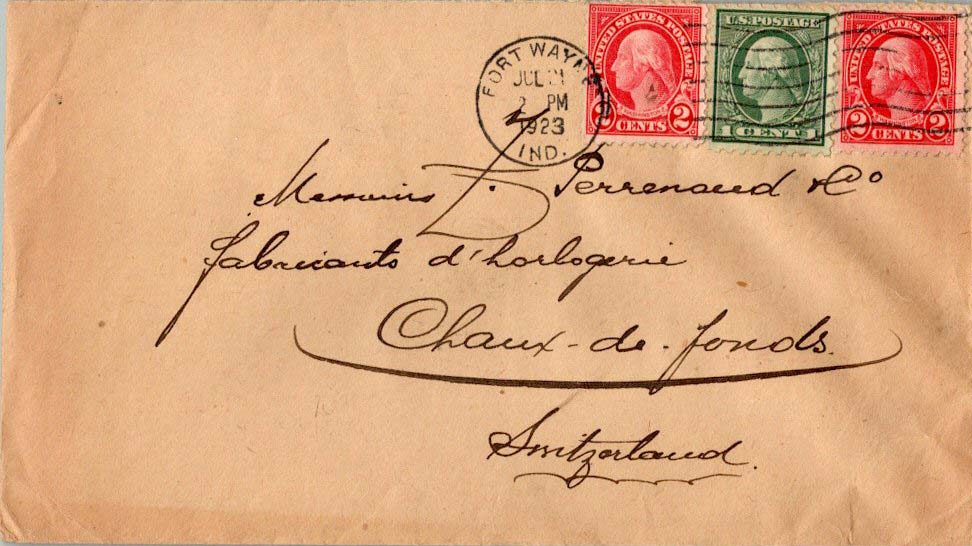 UNITED STATES POSTAGE
2 CENTS 2
U.S. POSTAGE
1 CENT 1
UNITED STATES POSTAGE
2 CENTS 2
FORT WAYNE
JUL 21
2 PM
1923
IND.
Messieurs D. Perrenoud & Co
fabricants d'horlogerie
Chaux-de-fonds.
Switzerland.